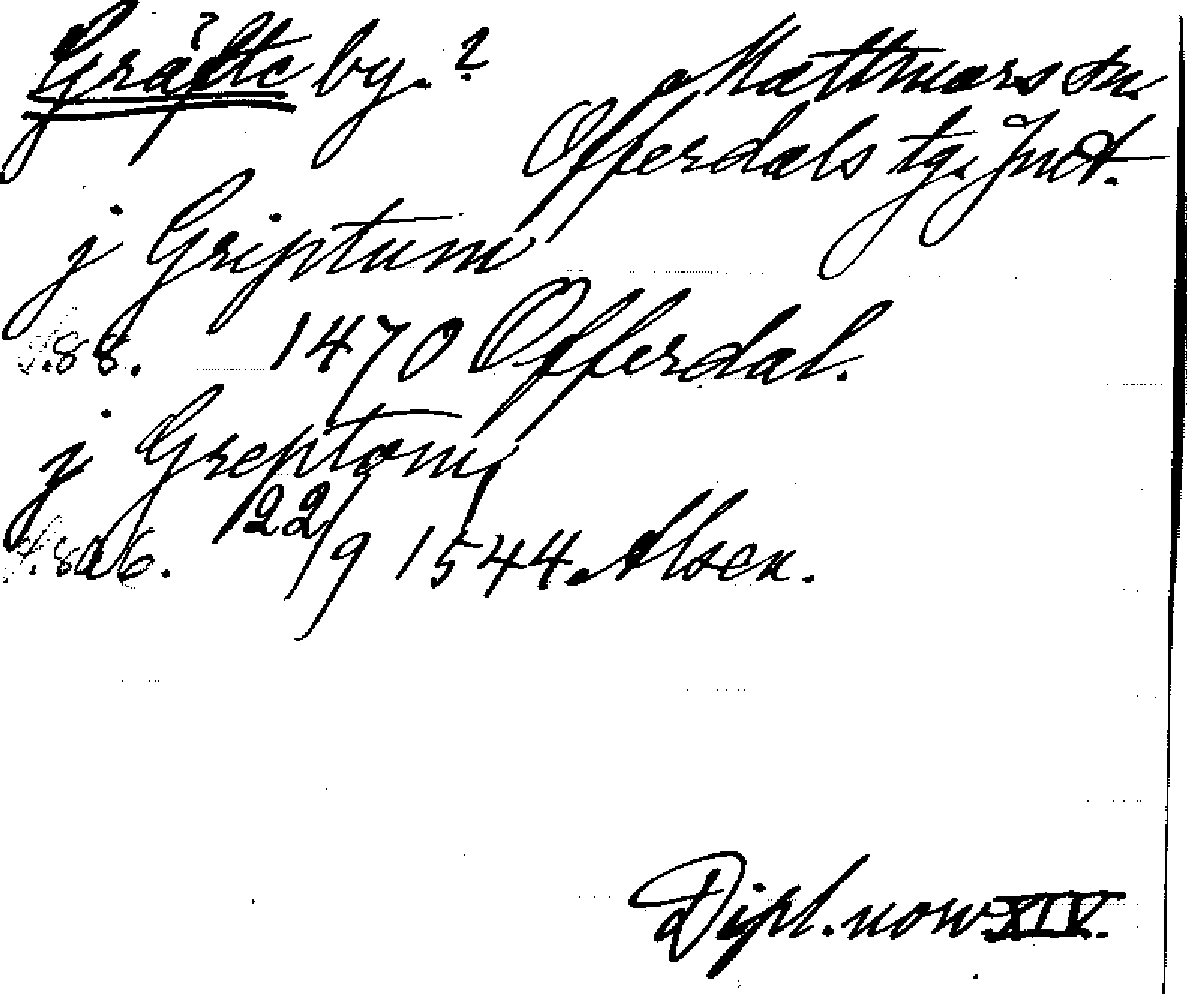 Gräfte by. ?
Mattmars sn.
Offerdals tg. Jmt.
j Griptum
S. 88. 1470 Offerdal.
j Greptom
S. 806. 22/9 1544. Alsen.
Dipl. norv. XIV.